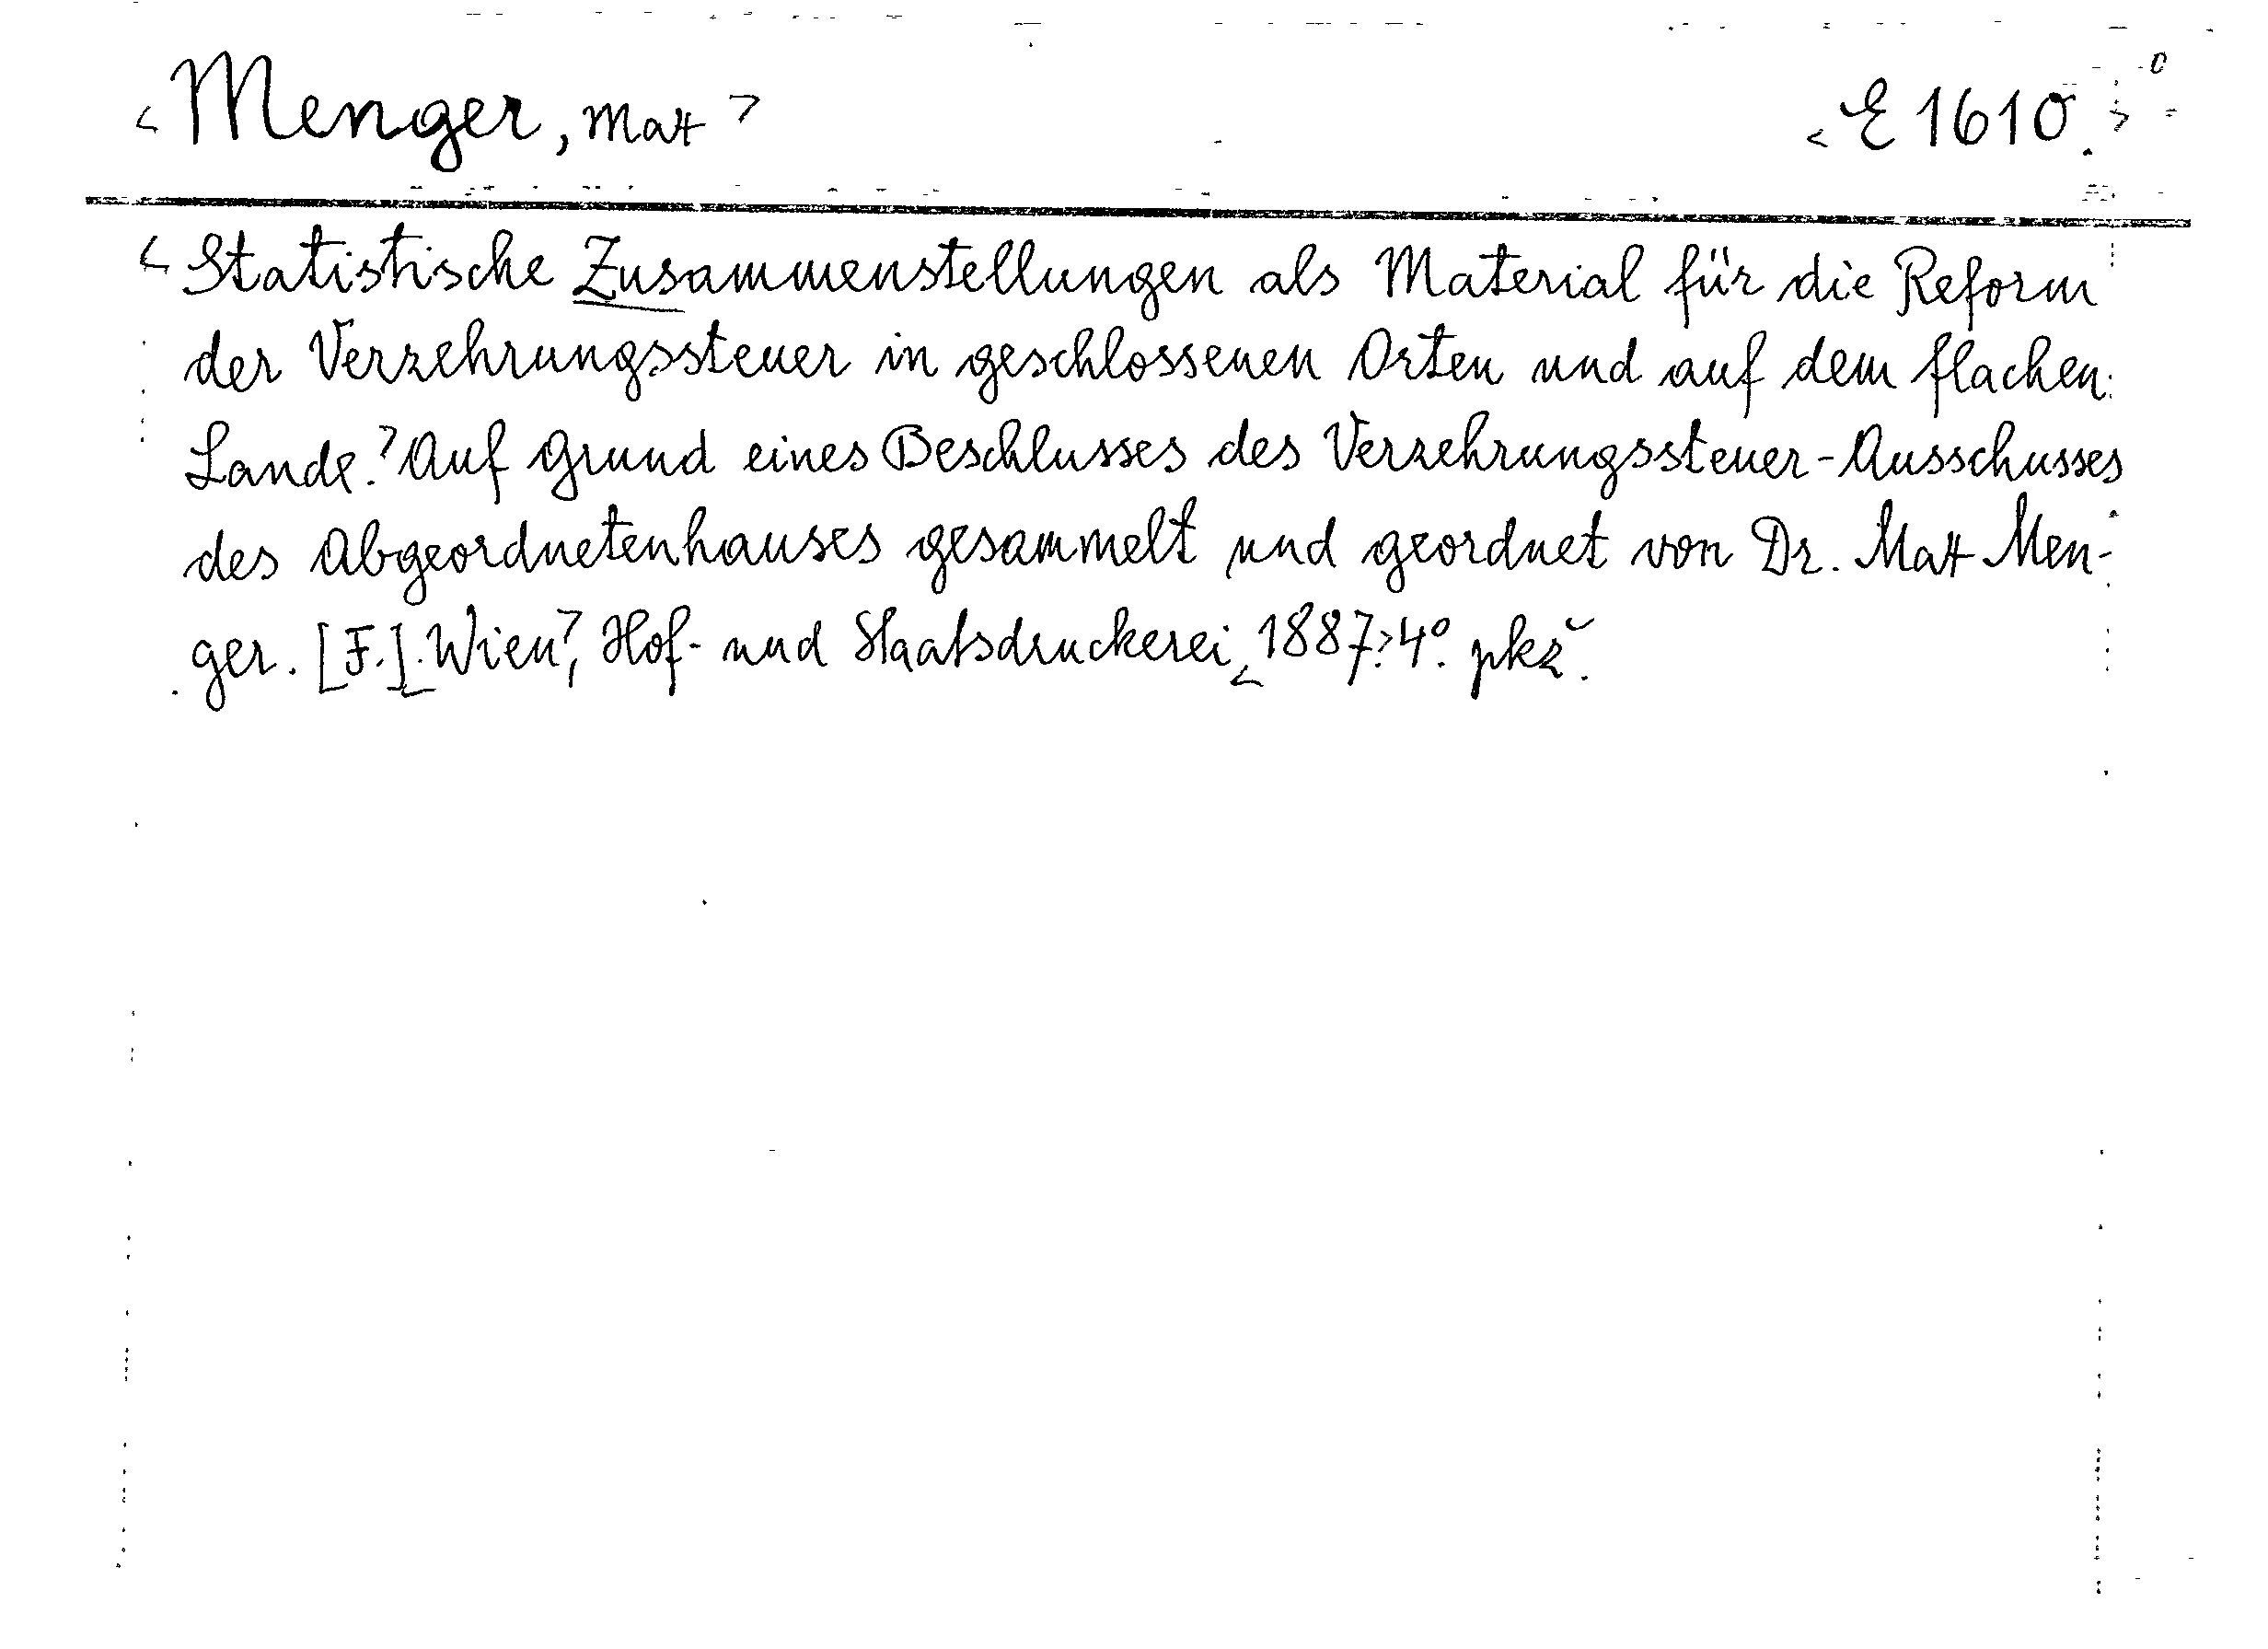 <Menger, Max> <E 1610.>
<Statistische Zusammenstellungen als Material für die Reform
der Verzehrungssteuer in geschlossenen Orten und auf dem flachen
Lande.> Auf Grund eines Beschlusses des Verzehrungssteuer-Ausschusses
des Abgeordnetenhauses gesammelt und geordnet von Dr. Max Men-
ger. [F.] <Wien>, Hof- und Staatsdruckerei, <1887.> 4°. pkž.